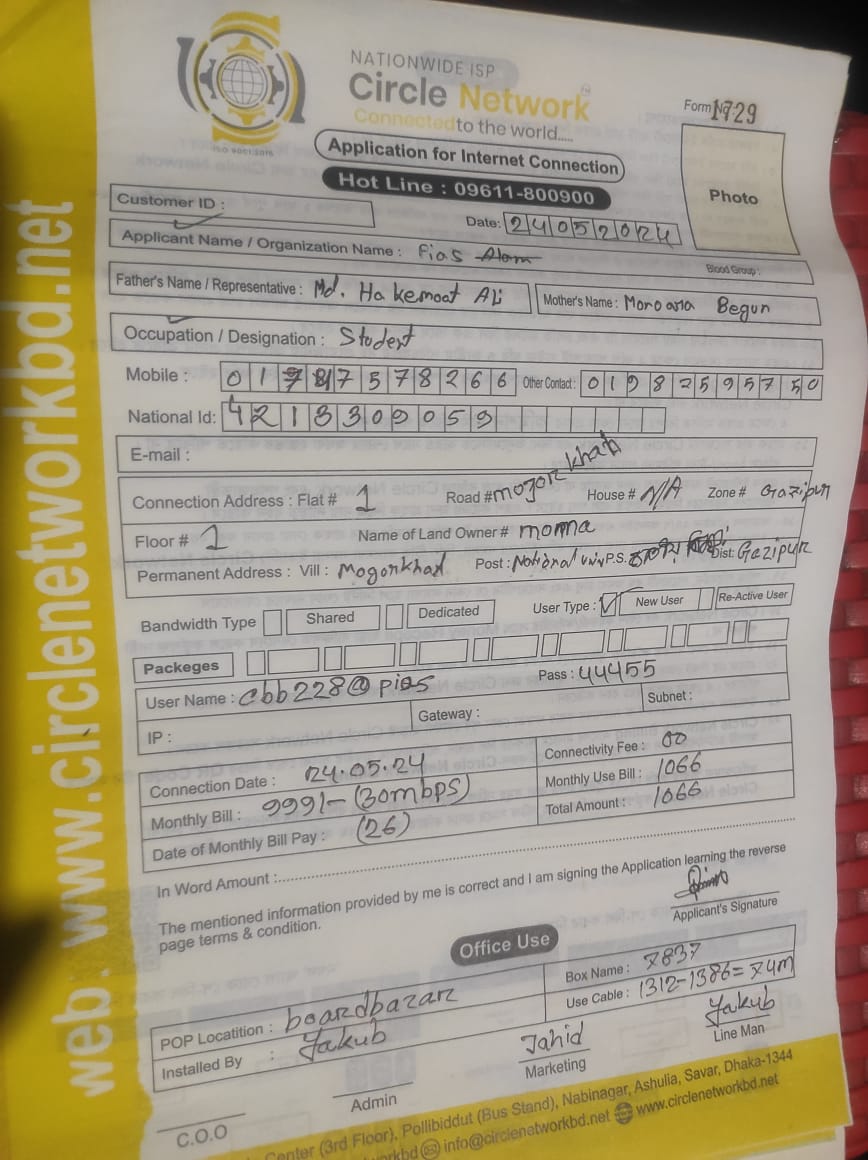 NATIONWIDE ISP
Circle Network
Connected to the world.....
ISO 9001:2015
Form 1729
Application for Internet Connection
Hot Line : 09611-800900
Photo
Customer ID :
Date: 24052024
Applicant Name / Organization Name : Pias Alam
Blood Group :
Father's Name / Representative : Md. Hakemoat Ali Mother's Name : Moroana Begun
Occupation / Designation : Student
Mobile : 017 7578266 Other Contact : 01982595750
National Id: 4213309059
E-mail :
Connection Address : Flat # 1 Road # mogorkhad House # N/A Zone # Gazipur
Floor # 1 Name of Land Owner # momna
Permanent Address : Vill : Mogorkhad Post : National univ P.S. Dist: Gazipur
Bandwidth Type Shared Dedicated User Type : New User Re-Active User
Packeges
User Name : cbb228@pias Pass : 44455
IP : Gateway : Subnet :
Connection Date : 24.05.24 Connectivity Fee : 00
Monthly Bill : 999/- (30mbps) Monthly Use Bill : 1066
Date of Monthly Bill Pay : (26) Total Amount : 1066
In Word Amount :
The mentioned information provided by me is correct and I am signing the Application learning the reverse
page terms & condition.
Applicant's Signature
Office Use
POP Locatition : boardbazar Box Name : 7837
Installed By : Yakub Use Cable : 1312-1386=74m
Jahid Yakub
C.O.O Admin Marketing Line Man
Center (3rd Floor), Pollibiddut (Bus Stand), Nabinagar, Ashulia, Savar, Dhaka-1344
info@circlenetworkbd.net www.circlenetworkbd.net
web: www.circlenetworkbd.net